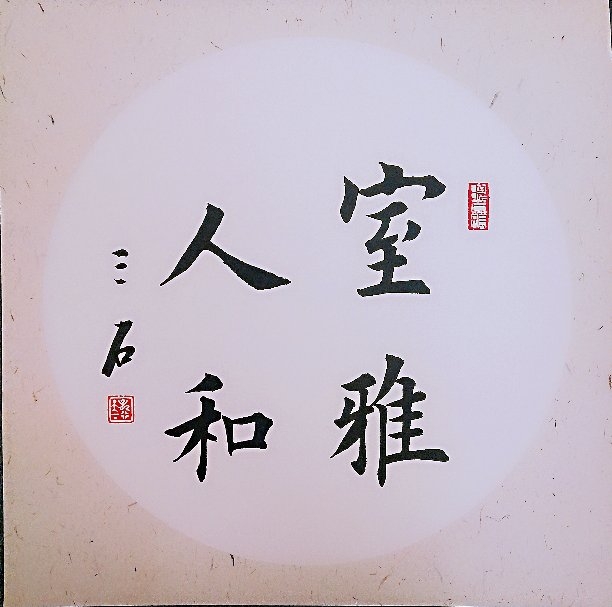 室雅
人和
三石